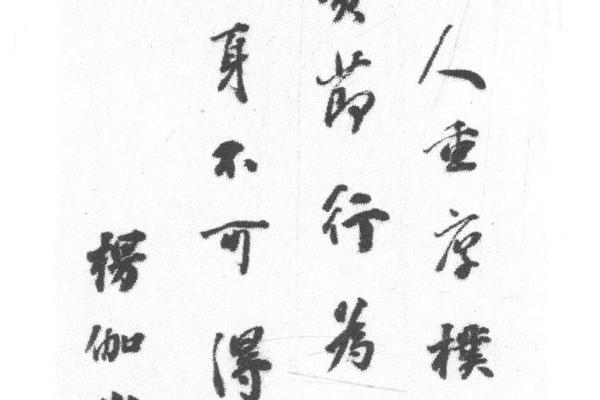 人重樸
節行為
身不可得
楊伽